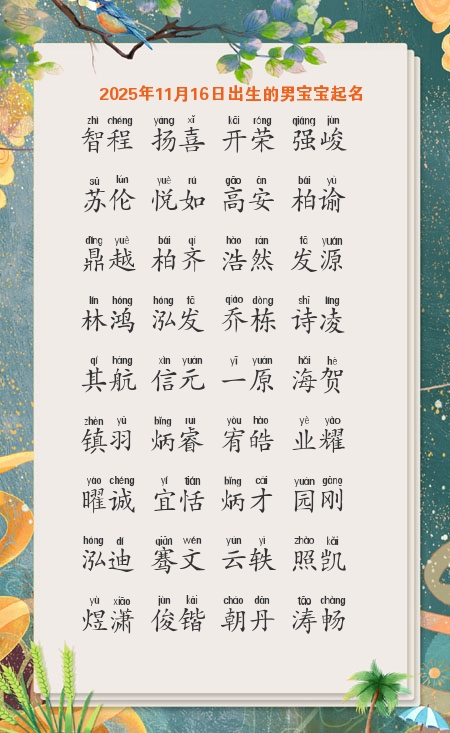 2025年11月16日出生的男宝宝起名
zhì chéng yáng xǐ kāi róng qiáng jùn
智程 扬喜 开荣 强峻
sū lún yuè rú gāo ān bái yù
苏伦 悦如 高安 柏谕
dǐng yuè bái qí hào rán fā yuán
鼎越 柏齐 浩然 发源
lín hóng hóng fā qiáo dòng shī líng
林鸿 泓发 乔栋 诗凌
qí háng xìn yuán yī yuán hǎi hè
其航 信元 一原 海贺
zhèn yǔ bǐng ruì yòu hào yè yào
镇羽 炳睿 宥皓 业耀
yào chéng yí tián bǐng cái yuán gāng
曜诚 宜恬 炳才 园刚
hóng dí qiān wén yún yì zhào kǎi
泓迪 骞文 云轶 照凯
yù xiāo jùn kǎi cháo dān tāo chàng
煜潇 俊锴 朝丹 涛畅